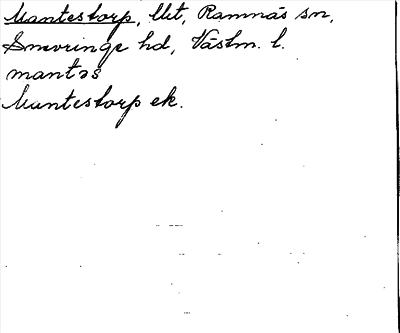 Mantestorp, llt, Ramnäs sn,
Snevringe hd, Västm. l.
mantəs
Mantestorp ek.